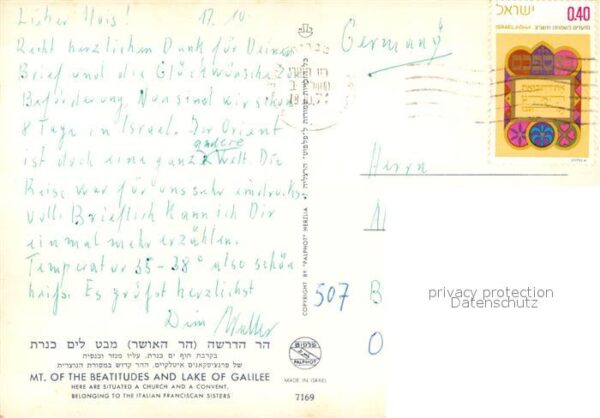 Lieber Alois! 17.10.
Recht herzlichen Dank für Deinen
Brief und die Glückwünsche zur
Beförderung. Nun sind wir schon
8 Tage in Israel. Der Orient
ist doch eine ganz andere Welt. Die
Reise war für uns sehr eindrucks-
voll. Brieflich kann ich Dir
einmal mehr erzählen.
Temperatur 35-38° also schön
heiß. Es grüßt herzlichst
Dein Walter
הר הדרשה (הר האושר) מבט לים כנרת
בקרבת חוף ים כנרת. עליו מנזר וכנסיה
של פרנציסקאנים איטלקיים. ההר קדוש במסורת הנוצרית
MT. OF THE BEATITUDES AND LAKE OF GALILEE
HERE ARE SITUATED A CHURCH AND A CONVENT,
BELONGING TO THE ITALIAN FRANCISCAN SISTERS
COPYRIGHT BY "PALPHOT" HERZLIA
כל הזכויות שמורות ל"פלפוט" הרצליה
פלפוט
PALPHOT
MADE IN ISRAEL
7169
Germany
Herrn
507
B
O
ישראל
ISRAEL
0.40
privacy protection
Datenschutz